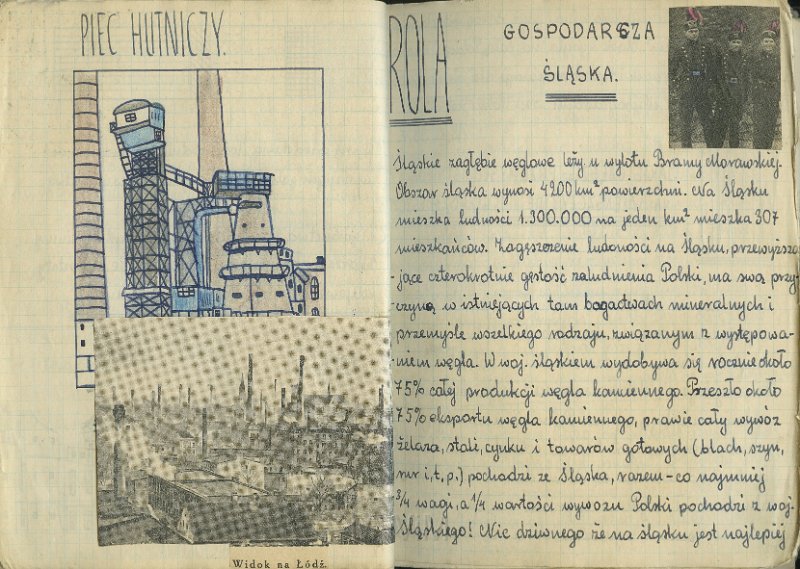 PIEC HUTNICZY.
Widok na Łódź.
ROLA GOSPODARCZA
ŚLĄSKA.
Śląskie zagłębie węglowe leży u wylotu Bramy Morawskiej.
Obszar śląska wynosi 4200 km² powierzchni. Na Śląsku
mieszka ludności 1.300.000 na jeden km² mieszka 307
mieszkańców. Zagęszczenie ludoności na Śląsku, przewyższa
-jące czterokrotnie gęstość zaludnienia Polski, ma swą przy-
czyną w istniejących tam bogactwach mineralnych i
przemyśle wszelkiego rodzaju, związanym z występowa-
-niem węgla. W woj. śląskiem wydobywa się rocznie około
75% całej produkcji węgla kamiennego. Przeszło około
75% eksportu węgla kamiennego, prawie cały wywóz
żelaza, stali, cynku i towarów gotowych (blach, szyn,
rur i, t, p.) pochodzi ze Śląska, razem - co najmniej
3/4 wagi, a 1/4 wartości wywozu Polski pochodzi z woj.
Śląskiego! Nic dziwnego że na śląsku jest najlepiej